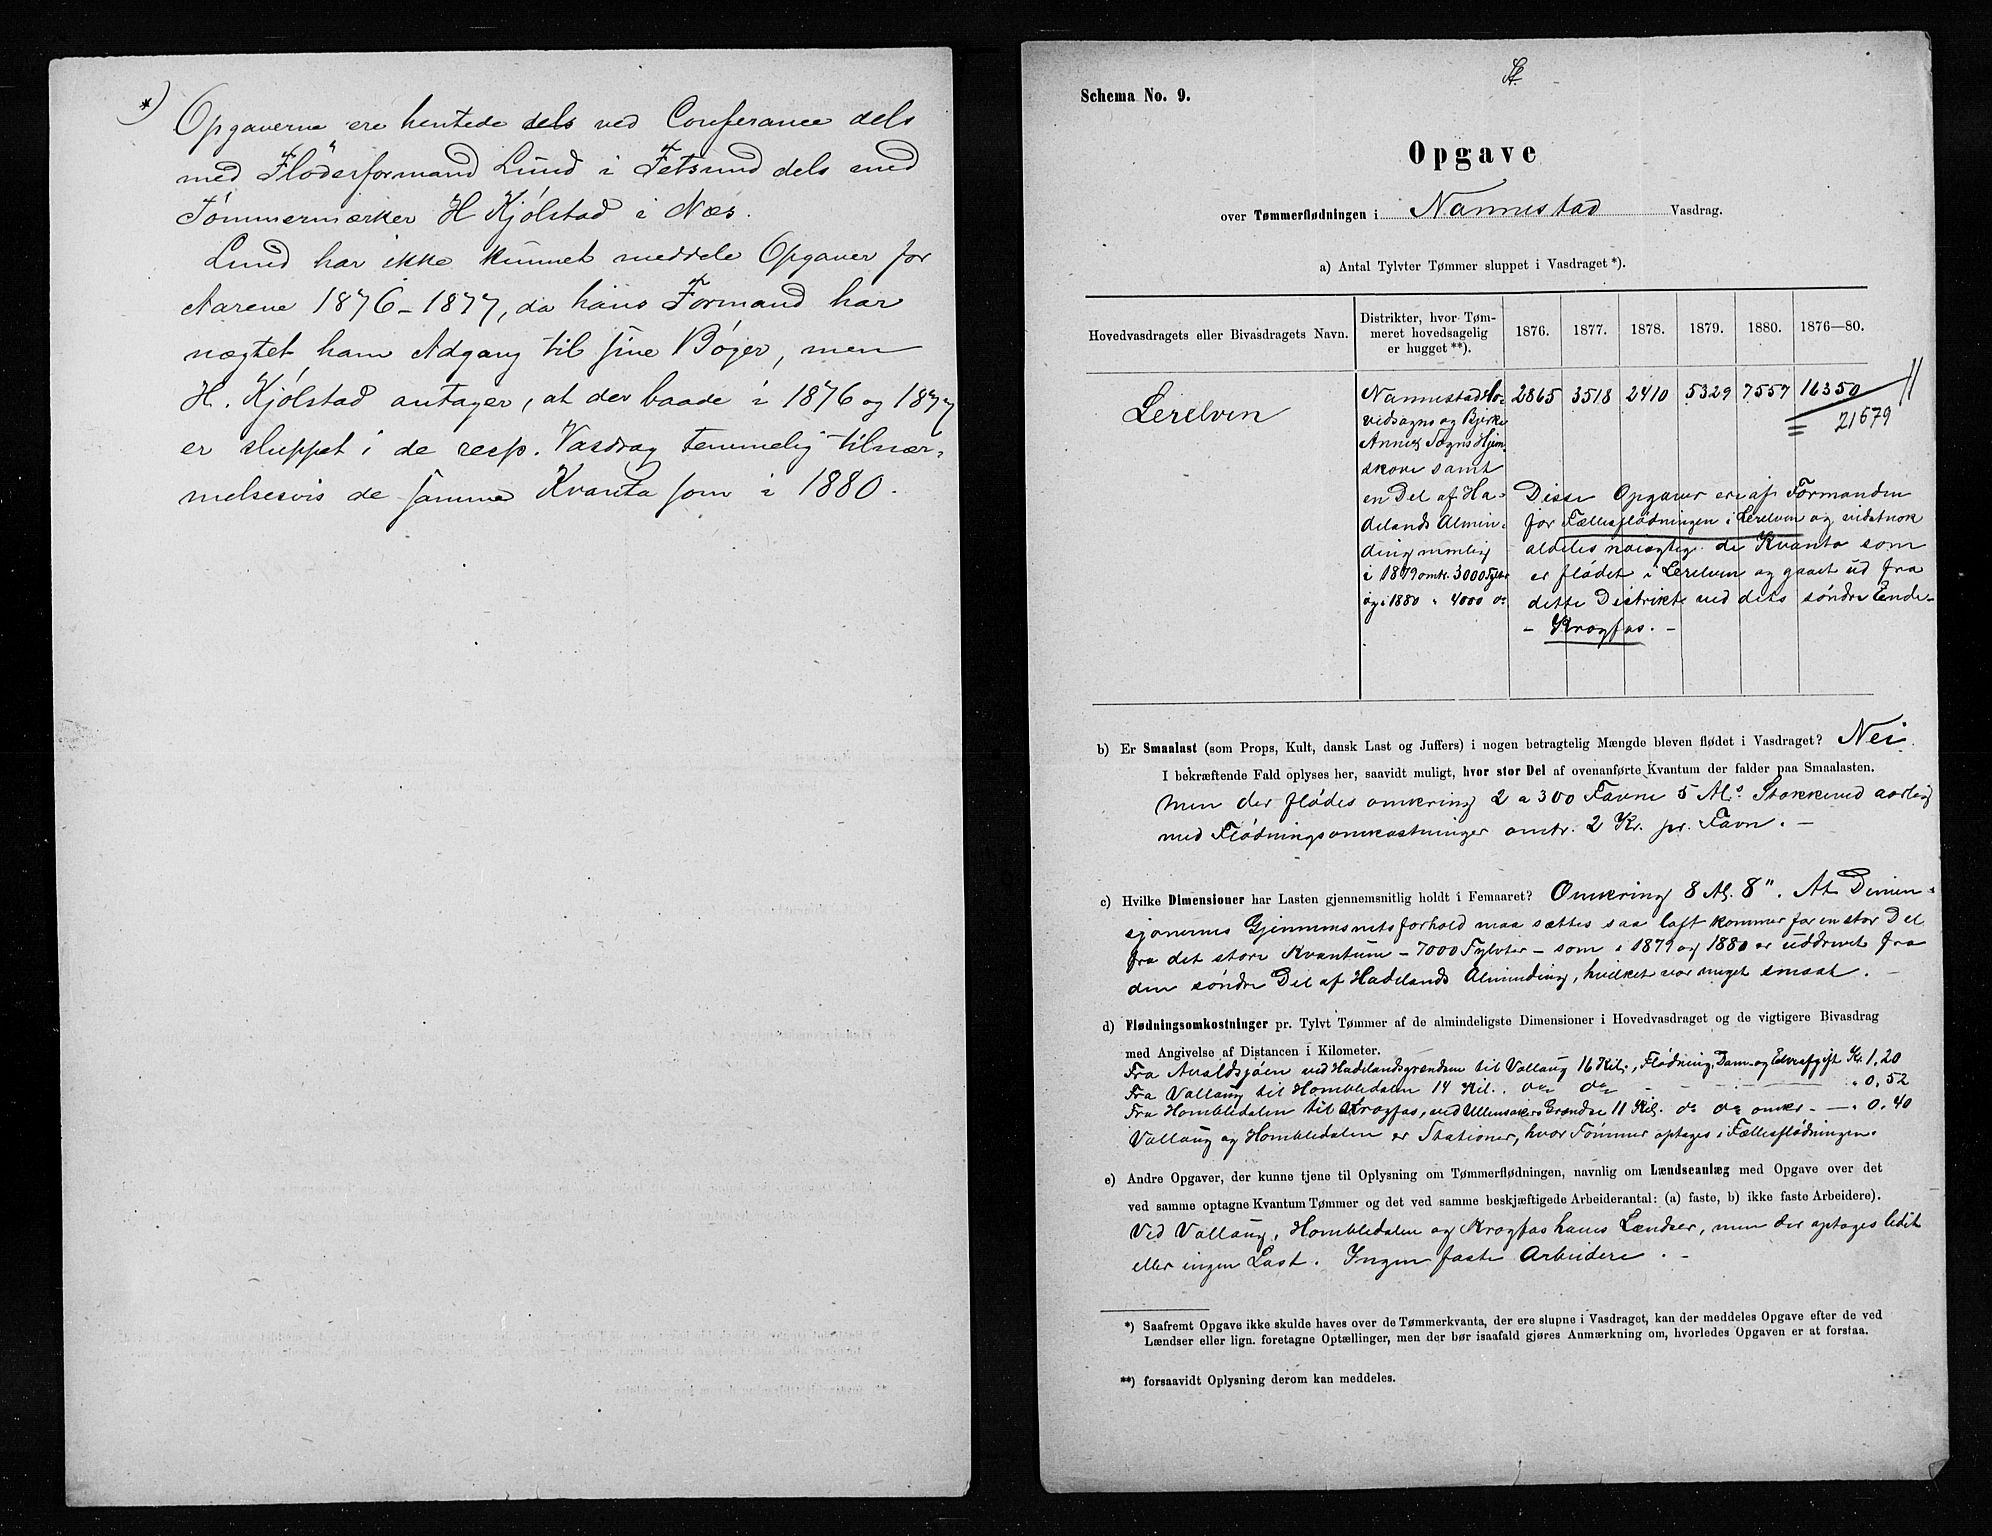 *) Opgaverne ere hentede dels ved Conferance dels
med Fløderformand Lund i Fetsund dels med
Tømmermærker H Kjølstad i Næs.
Lund har ikke kunnet meddele Opgaver for
Aarene 1876-1877, da hans Formand har
nægtet ham Adgang til sine Bøger, men
H. Kjølstad antager, at der baade i 1876 og 1877
er sluppet i de resp. Vasdrag temmelig tilnær-
melsesvis de samme Kvanta som i 1880.
Schema No. 9.
Opgave
over Tømmerflødningen i Nannestad Vasdrag.
a) Antal Tylvter Tømmer sluppet i Vasdraget *).
Hovedvasdragets eller Bivasdragets Navn.
Distrikter, hvor Tøm-
meret hovedsagelig
er hugget **).
1876. 1877. 1878. 1879. 1880. 1876—80.
Lerelven
Nannestads Ho-
vedsogns og Bjerke
Annex Sogns Hjem-
skove samt
en Del af Ha-
delands Almin-
ding nemlig
i 1879 omkr. 3000 Tylvter
og i 1880 " 4000 do
2865 3518 2410 5329 7557 16350
21679
Disse Opgaver ere af Formanden
for Fællesflødningen i Lerelven og vidstnok
aldeles nøiagtig de Kvanta som
er flødet i Lerelven og gaaet ud fra
dette Distrikt ved dets søndre Ende-
- Krogfos. -
b) Er Smaalast (som Props, Kult, dansk Last og Juffers) i nogen betragtelig Mængde bleven flødet i Vasdraget? Nei.
I bekræftende Fald oplyses her, saavidt muligt, hvor stor Del af ovenanførte Kvantum der falder paa Smaalasten.
men der flødes omkring 2 a 300 Favne 5 Al.s Stokkeved aarlig
med Flødningsomkostninger omtr. 2 Kr. pr. Favn. -
c) Hvilke Dimensioner har Lasten gjennemsnitlig holdt i Femaaret? Omkring 8 Al. 8". At Dimen-
sjonernes Gjennemsnitsforhold maa sættes saa lavt kommer for en stor Del
fra det store Kvantum - 7000 Tylvter - som i 1879 og 1880 er uddrevet fra
den søndre Del af Hadelands Alminding, hvilket var meget smaat. -
d) Flødningsomkostninger pr. Tylvt Tømmer af de almindeligste Dimensioner i Hovedvasdraget og de vigtigere Bivasdrag
med Angivelse af Distancen i Kilometer.
Fra Avalsjøen ved Hadelandsgrændsen til Vallaug 16 Kil., Flødning, Dam- og Elveafgift Kr. 1,20
Fra Vallaug til Hombledalen 14 Kil. do do - - - - " 0,52
Fra Hombledalen til Krogfos, ved Ullensakers Grændse 11 Kil. do do omkr. - - " 0,40
Vallaug og Hombledalen er Stationer, hvor Tømmer optages i Fællesflødningen.
e) Andre Opgaver, der kunne tjene til Oplysning om Tømmerflødningen, navnlig om Lændseanlæg med Opgave over det
ved samme optagne Kvantum Tømmer og det ved samme beskjæftigede Arbeiderantal: (a) faste, b) ikke faste Arbeidere).
Ved Vallaug, Hombledalen og Krogfos haves Lændser, men der optages lidet
eller ingen Last. Ingen faste Arbeidere. -
*) Saafremt Opgave ikke skulde haves over de Tømmerkvanta, der ere slupne i Vasdraget, kan der meddeles Opgave efter de ved
Lændser eller lign. foretagne Optællinger, men der bør isaafald gjøres Anmærkning om, hvorledes Opgaven er at forstaa.
**) forsaavidt Oplysning derom kan meddeles.